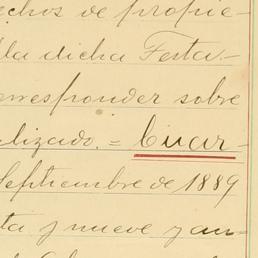 echos de propie-
la dicha Testa-
orresponder sobre
alizado. = Cuar-
Septiembre de 1889
ta y nueve y au-